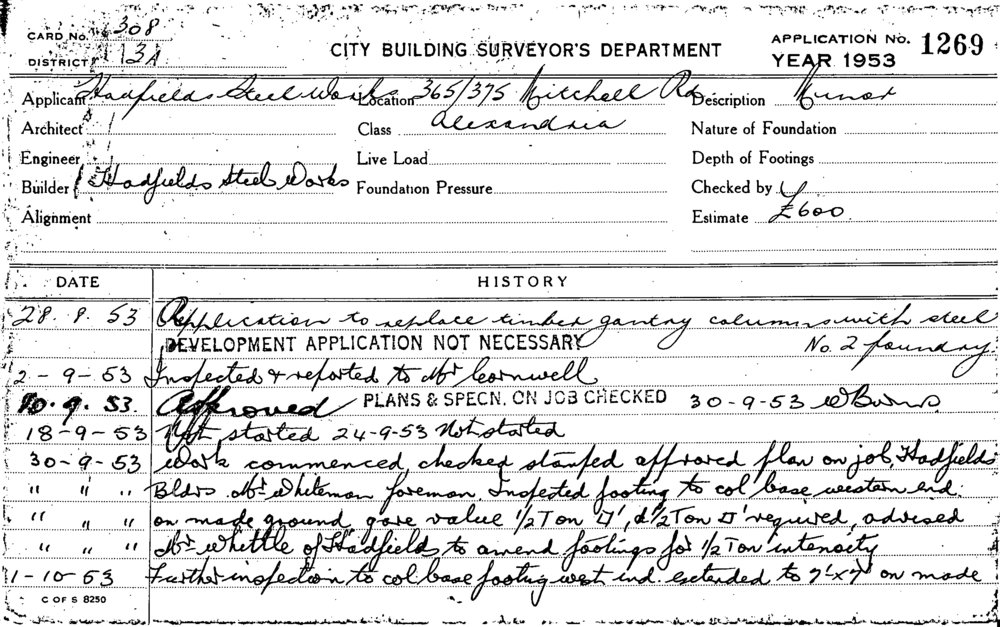 CARD No. 308
DISTRICT 13A
CITY BUILDING SURVEYOR'S DEPARTMENT
APPLICATION No. 1269
YEAR 1953
Applicant Hadfields Steel Works Location 365/375 Mitchell Rd Description Minor
Architect Class Alexandria Nature of Foundation
Engineer Live Load Depth of Footings
Builder Hadfields Steel Works Foundation Pressure Checked by
Alignment Estimate £600
DATE HISTORY
28. 8. 53 Application to replace timber gantry columns with steel
DEVELOPMENT APPLICATION NOT NECESSARY No. 2 foundry
2-9-53 Inspected & reported to Mr Cornwell
10.9.53. Approved PLANS & SPECN. ON JOB CHECKED 30-9-53 WBurns.
18-9-53 Not started 24-9-53 Not started
30-9-53 Work commenced, checked stamped approved plan on job, Hadfields
" " " Bldrs Mr Whiteman foreman. Inspected footing to col base western end.
" " " on made ground, gave value 1/2 Ton □', 1/2 Ton □' required, advised
" " " Mr Whittle of Hadfields to amend footings for 1/2 Ton intensity
1-10-53 Further inspection to col. base footing west end. extended to 7'x7' on made
C OF S 8250